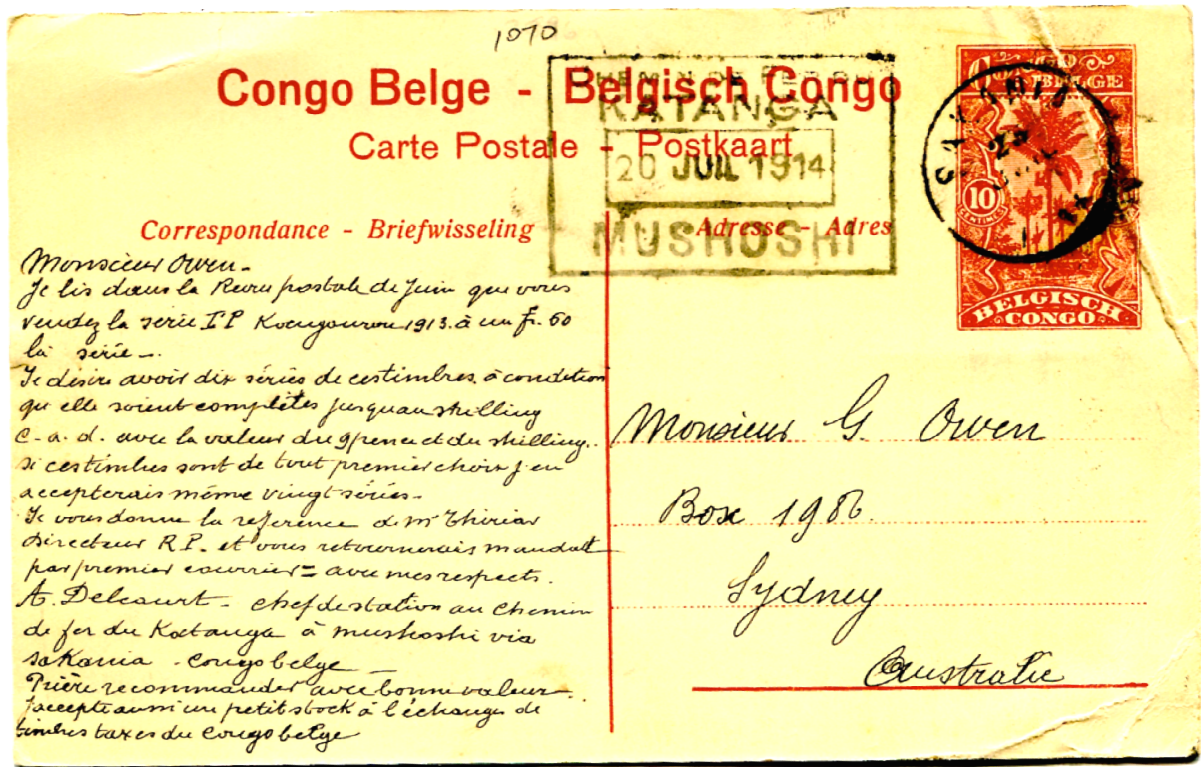 1070
Congo Belge - Belgisch Congo
Carte Postale - Postkaart
CHEMIN DE FER DU
KATANGA
20 JUIL 1914
MUSHOSHI
CONGO BELGE
SAKANIA
10
CENTIMES
BELGISCH
CONGO
Correspondance - Briefwisseling
Adresse - Adres
Monsieur Owen -
Je lis dans la Revue postale de Juin que vous
vendez la série I P Kougourou 1913. à un fr. 60
la série -.
Je désire avoir dix séries de ces timbres. à condition
qu elle soient complètes jusqu au shilling
c. a. d. avec la valeur du 9 pence et du shilling.
si ces timbres sont de tout premier choix j en
accepterais même vingt séries -
Je vous donne la reference de Mr Thiriar
directeur R. P. et vous retournerais mandat
par premier courrier = avec mes respects.
A. Delcourt - chef de station au Chemin
de fer du Katanga à Mushoshi via
Sakania - Congo belge -
Prière recommander avec bonne valeur
J accepte aussi un petit stock à l'échange de
timbres taxes du Congo belge
Monsieur G. Owen
Box 1986
Sydney
Australie